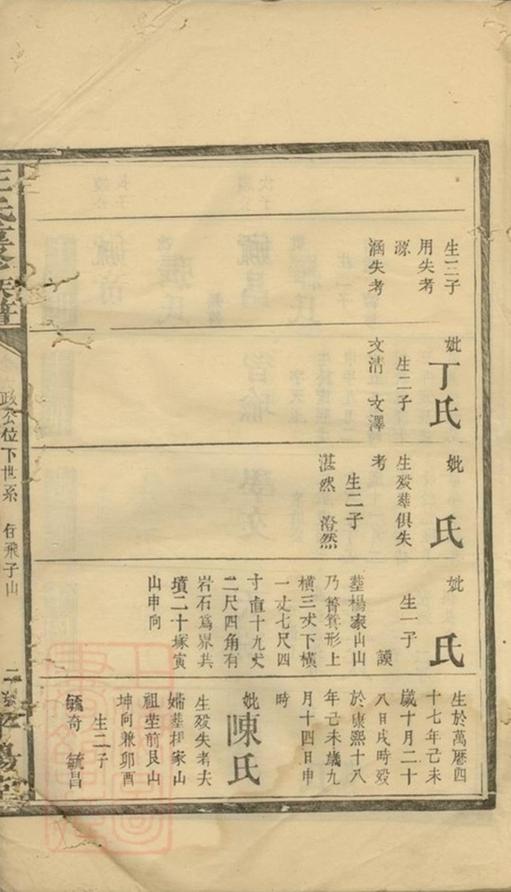 生三子
用失考
源
涵失考
妣丁氏
生二子
文清 文澤
妣 氏
生歿葬俱失
考
生二子
湛然 澄然
妣 氏
生一子
謨
塟楊家山山
乃簪箕形上
橫三丈下橫
一丈七尺四
寸直十九丈
二尺四角有
岩石為界共
墳二十塚寅
山申向
生於萬曆四
十七年己未
歲十月二十
八日戌時歿
於康熙十八
年己未歲九
月十四日申
時
妣陳氏
生歿失考夫
婦葬楊家山
祖塋前艮山
坤向兼卯酉
生二子
毓奇 毓昌
政公位下世系